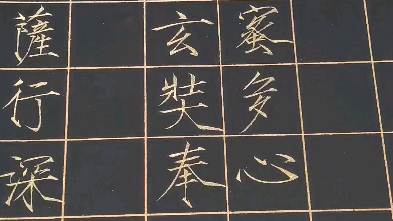 蜜多心
玄奘奉
薩行深